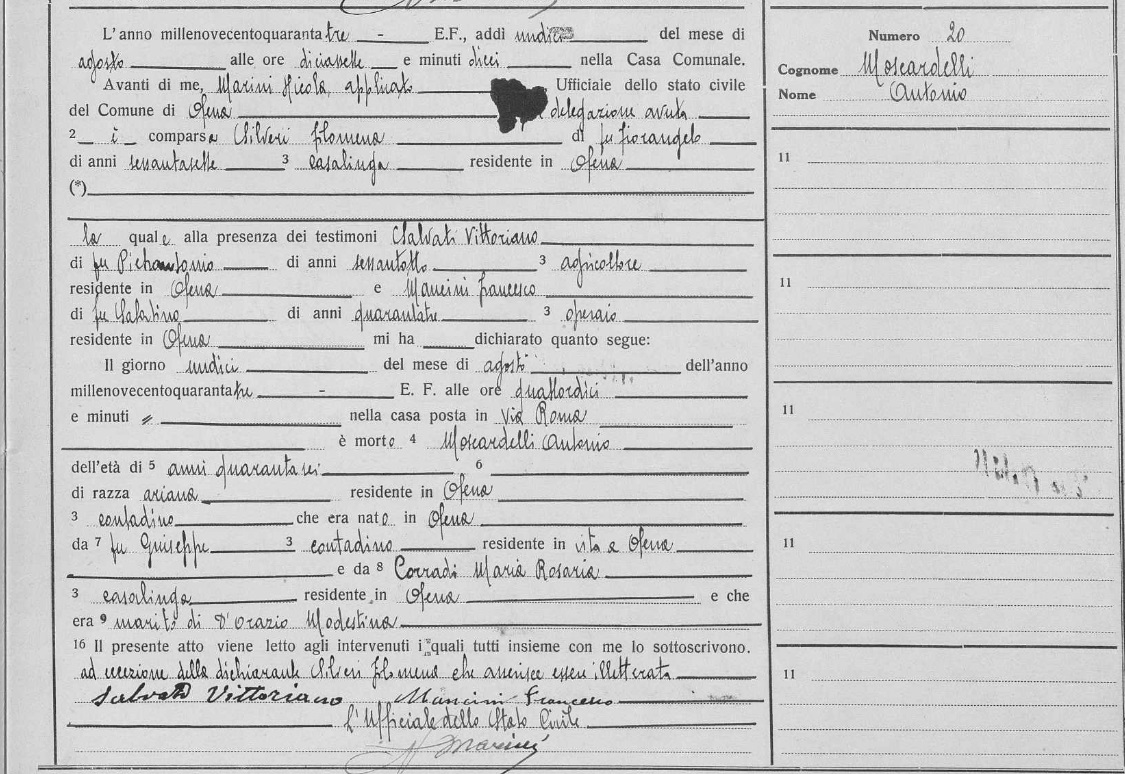 L'anno millenovecentoquaranta tre - E.F., addì undici del mese di
agosto alle ore diciasette e minuti dieci nella Casa Comunale.
Avanti di me, Marini Nicola, applicato Ufficiale dello stato civile
del Comune di Ofena delegazione avuta
2 è comparsa Silveri Filomena di fu Fiorangelo
di anni sessantasette 3 casalinga residente in Ofena
(*)
la quale alla presenza dei testimoni Salvati Vittoriano
di fu Pietrantonio di anni sessantotto 3 agricoltore
residente in Ofena e Mancini Francesco
di fu Sabatino di anni quarantatre 3 operaio
residente in Ofena mi ha dichiarato quanto segue:
Il giorno undici del mese di agosto dell'anno
millenovecentoquaranta tre - E. F. alle ore quattordici
e minuti " nella casa posta in Via Roma
è morto 4 Moscardelli Antonio
dell'età di 5 anni quarantasei 6
di razza ariana residente in Ofena
3 contadino che era nato in Ofena
da 7 fu Giuseppe 3 contadino residente in vita a Ofena
e da 8 Corradi Maria Rosaria
3 casalinga residente in Ofena e che
era 9 marito di D'Orazio Modestina
16 Il presente atto viene letto agli intervenuti i quali tutti insieme con me lo sottoscrivono.
ad eccezione della dichiarante Silveri Filomena che asserisce essere illetterata
Salvati Vittoriano Mancini Francesco
L'Ufficiale dello Stato Civile
N Marini
Numero 20
Cognome Moscardelli
Nome Antonio
11
11
11
11
11